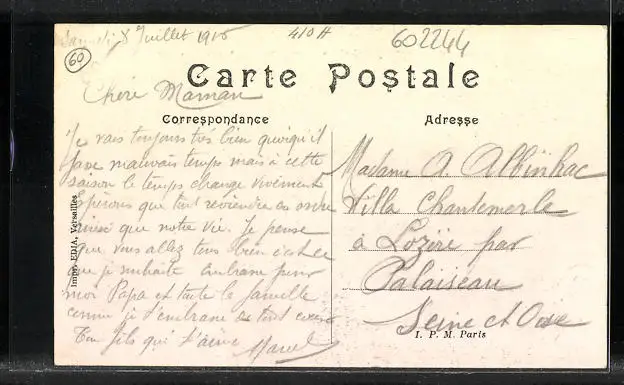 Samedi 8 Juillet 1916
410A
602244
60
Carte Postale
Chère Maman
Correspondance
Adresse
Je vais toujours très bien quoiqu'il
fasse mauvais temps mais à cette
saison le temps change vivement
Espérons que tout reviendra en ordre
ainsi que notre vie. Je pense
que vous allez tous bien c'est ce
que je souhaite embrasse pour
moi Papa et toute la famille
comme je t'embrasse de tout cœur
Ton fils qui t'aime Marcel
Madame A. Albinhac
Villa Chantemerle
à Lozère par
Palaiseau
Seine et Oise
Imp. EDIA, Versailles
I. P. M. Paris